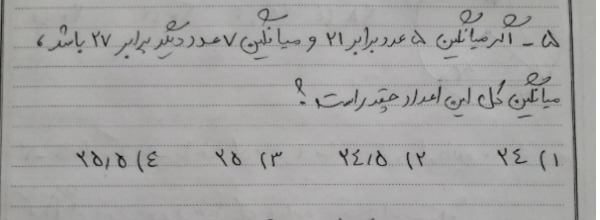 ۵ - اگر میانگین ۵ عدد برابر ۲۱ و میانگین ۷ عدد دیگر برابر ۲۷ باشد،
میانگین کل این اعداد چقدر است؟
۱) ۲٤ ۲) ۲٤٫۵ ۳) ۲۵ ٤) ۲۵٫۵